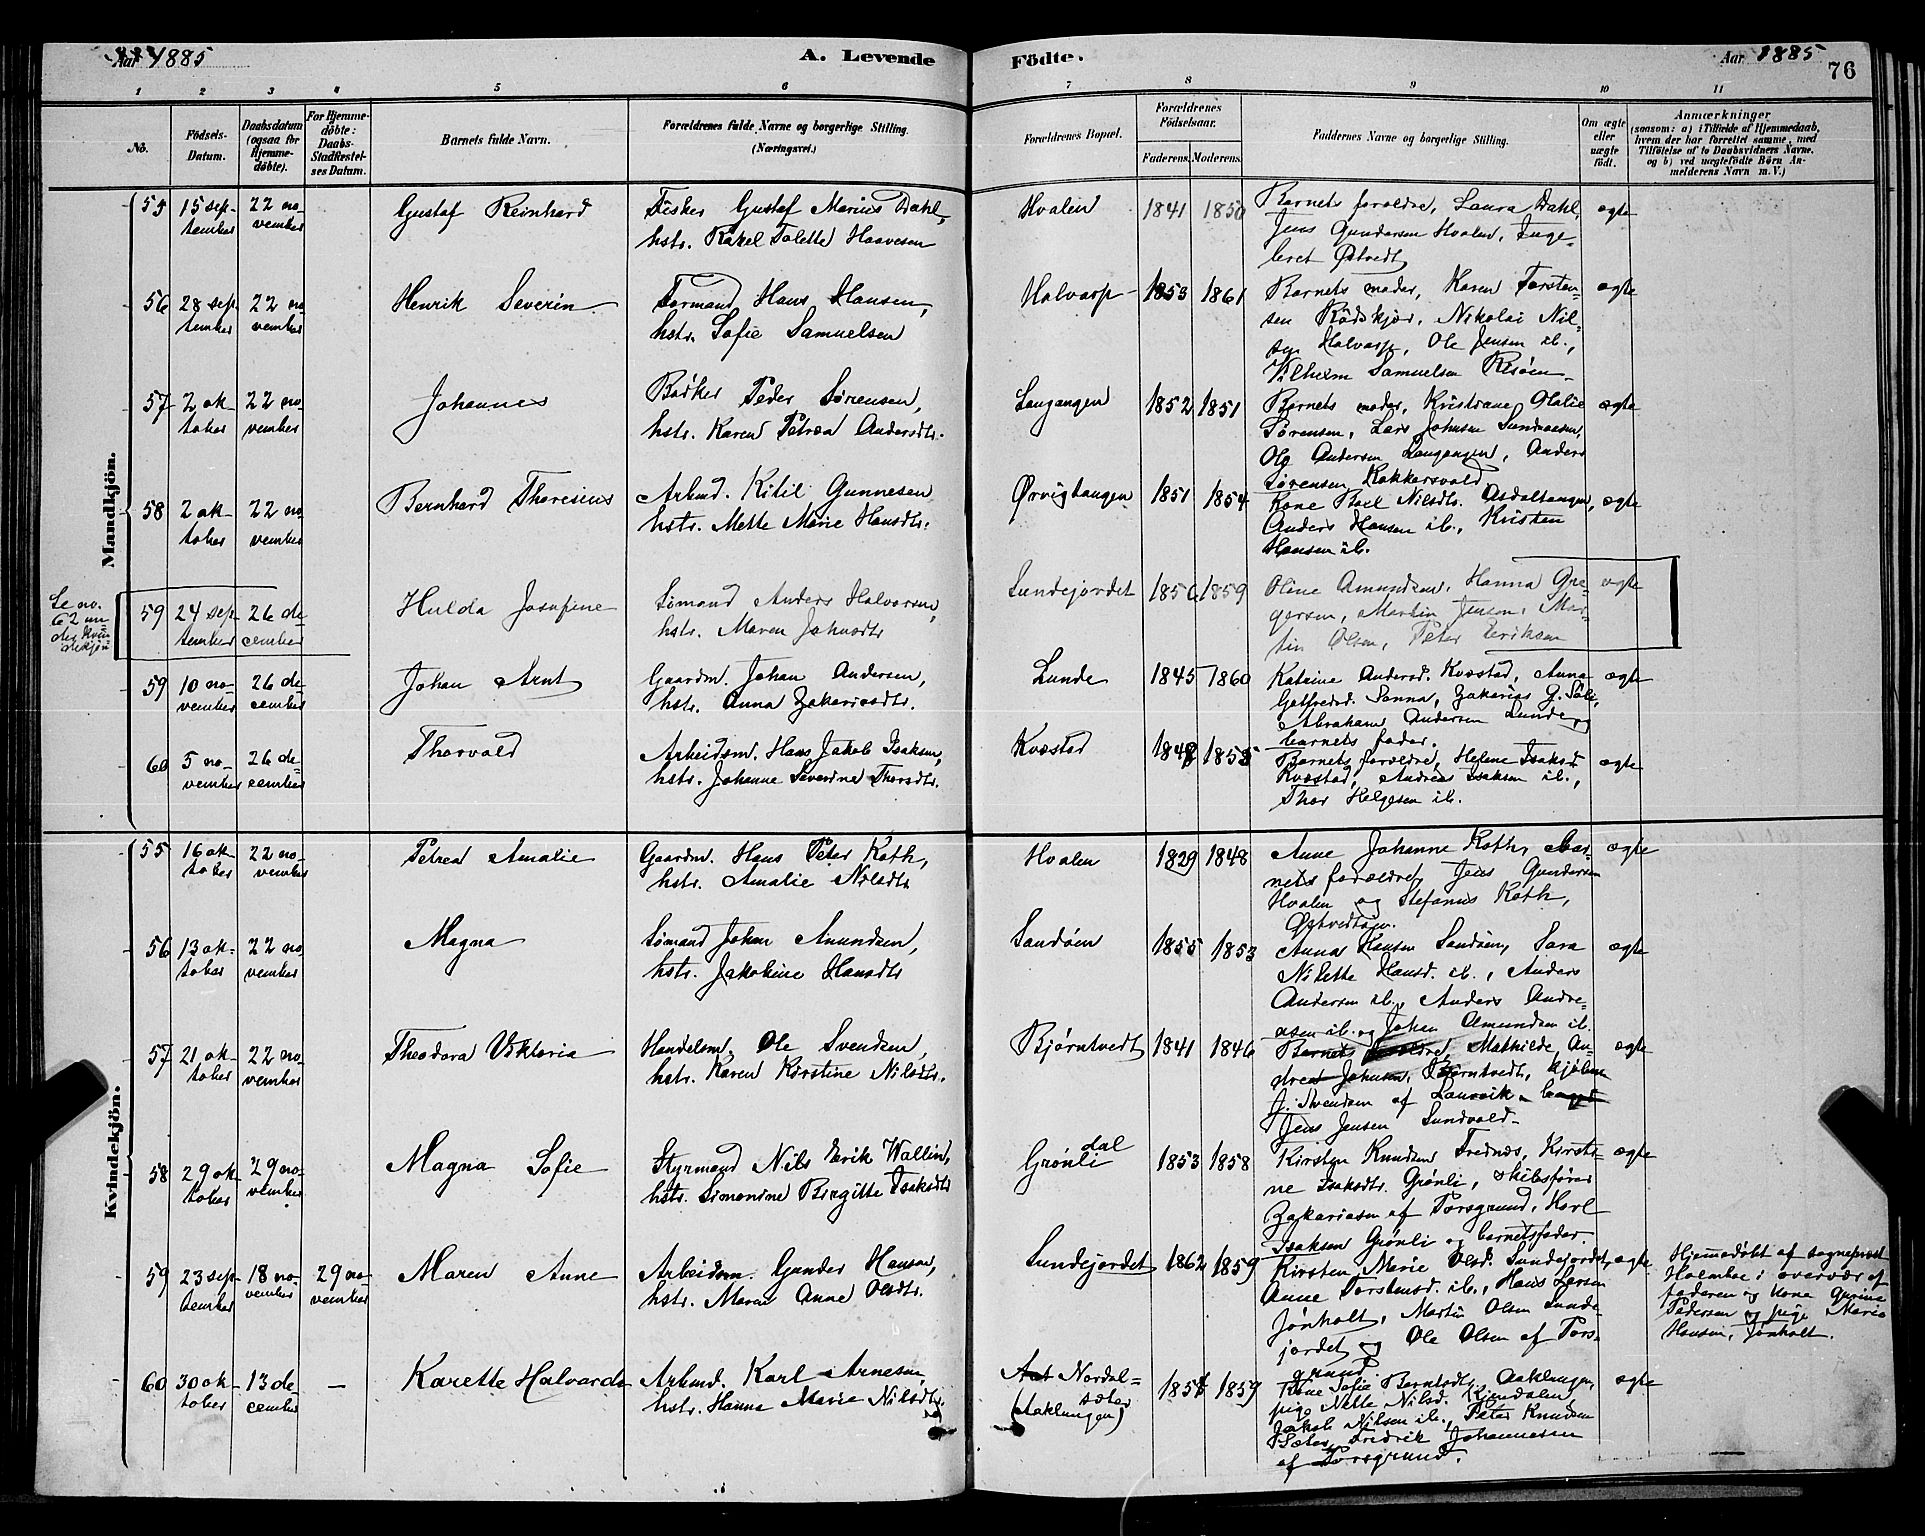 Aar 1885
A. Levende
Födte.
Aar 1885
76
1 2 3 4 5 6 7 8 9 10 11
No.
Födsels-Datum.
Daabsdatum (ogsaa for Hjemme-döbte).
For Hjemme-döbte: Daabs-Stadfæstel-ses Datum.
Barnets fulde Navn.
Forældrenes fulde Navne og borgerlige Stilling.
(Næringsvei.)
Forældrenes Bopæl.
Forældrenes Födselsaar.
Faderens. Moderens.
Faddernes Navne og borgerlige Stilling.
Om ægte eller uægte födt.
Anmærkninger
(saasom: a) i Tilfælde af Hjemmedaab, hvem der har forrettet samme, med Tilföielse af to Daabsvidners Navne, og b) ved uægtefödte Börn An-melderens Navn m. V.)
Mandkjön.
55 15 sep-tember 22 no-vember Gustaf Reinhard
Fisker Gustaf Marius Dahl,
hstr. Rakel Talette Haavesen
Hvalen 1841 1850
Barnets forældre, Laura Dahl,
Jens Gundersen Hvalen, Inge-
bret Østvedt
ægte
56 28 sep-tember 22 no-vember Henrik Severin
Formand Hans Hansen,
hstr. Sofie Samuelsen
Halvarp 1853 1861
Barnets moder, Karen Torsten-
sen Rødskjær, Nikolai Nil-
sen Halvarp, Ole Jensen ib.,
Vilhelm Samuelsen Risøen
ægte
57 2 ok-tober 22 no-vember Johannes
Bødker Peder Sørensen,
hstr. Karen Petrea Andersdtr.
Langangen 1852 1851
Barnets moder, Kristiane Olalie
Sørensen, Lars Johnsen
Ole Andersen Langangen, Anders
Sørensen
ægte
58 2 ok-tober 22 no-vember Bernhard Thoresius
Arbmd. Kitil Gunnesen
hstr. Mette Marie Hansdtr.
Ørvigtangen 1851 1854
Kone Nilsdtr. Asdaltangen,
Anders Hansen ib., Kristen
Hansen ib.
ægte
Se no.
62 un-
der kvin-
dekjøn
59 24 sep-tember 26 de-cember Hulda Josefine
Sømand Anders Halvorsen,
hstr. Maren Johnsdtr
Sundejordet 1856 1859
Oline Amundsen, Hanna Gre-
gersen, Martin Jensen, Mar-
tin Olsen, Peter Eriksen
ægte
59 10 no-vember 26 de-cember Johan Arnt
Gaardm. Johan Andersen,
hstr. Anna Zakariasdtr.
Lunde 1845 1860
Katrine Andersd. Kvæstad, Anna
Gotfredsd. Sanna, Zakarias G.
Abraham Andersen Lunde og
barnets fader.
ægte
60 5 no-vember 26 de-cember Thorvald
Arbeidsm. Hans Jakob Isaksen,
hstr. Johanne Severine Thorsdtr.
Kvæstad 1848 1855
Barnets forældre, Helene Isaksd
Kvæstad, Andreas Isaksen ib.,
Thor Helgesen ib.
ægte
Kvindekjön.
55 16 ok-tober 22 no-vember Petrea Amalie
Gaardm. Hans Peter Kath,
hstr. Amalie Nilsdtr
Hvalen 1829 1848
Anne Johanne Kath, bar-
nets forældre, Jens Gundersen
Hvalen og Stefanus Kath,
Østvedtøen.
ægte
56 13 ok-tober 22 no-vember Magna
Sømand Johan Amundsen,
hstr. Jakobine Hansdtr
Sandøen 1855 1853
Anna Hansen Sandøen, Sara
Nilette Hansd. ib., Anders
Andersen ib., Anders Andre-
asen ib. og Johan Amundsen ib.
ægte
57 21 ok-tober 22 no-vember Theodora Viktoria
Handelsm. Ole Svendsen,
hstr. Karen Kirstine Nilsdtr.
Bjørntvedt 1841 1846
Barnets forældre, Mathilde An-
drea Johnsen, Bjørntvedt,
J. Svendsen af Laurvik
Jens Jensen Sundvald
ægte
58 29 ok-tober 29 no-vember Magna Sofie
Styrmand Nils Erik Wallin,
hstr. Simonine Birgitte Isaksdtr
Grønli dal 1853 1858
Kirsten Knudsen Frednæs, Kirsti-
ne Isaksdtr. Grønli, skibsfører
Zakariasen af Porsgrund, Karl
Isaksen Grønli og barnets fader.
ægte
59 23 sep-tember 18 no-vember 29 no-vember Maren Anne
Arbeidsm. Gunder Hansen,
hstr. Maren Anne Olsdtr.
Sundejordet 1862 1859
Kirsten Marie Olsd. Sundejordet,
Anne Torstensd. ib., Hans Larsen
Jønholt, Martin Olsen Sunde-
jordet og Ole Olsen af Pors-
grund.
ægte
Hjemmedøbt af sogneprest
Holmboe i overvær af
faderen og kone Gurine
Pedersen og pige Maria
Hansen, Jønholt.
60 30 ok-tober 13 de-cember — Karette Halvarda
Arbmd. Karl Arnesen,
hstr. Hanna Marie Nilsdtr.
Nordal-
sæter
(Aaklungen) 1857 1859
Kone Sofie Berntsdtr Aaklungen,
pige Nette Nilsd. Kjendalen,
Jakob Nilsen ib., Peter Knudsen
Sæter, Fredrik Johannesen
af Porsgrund.
ægte